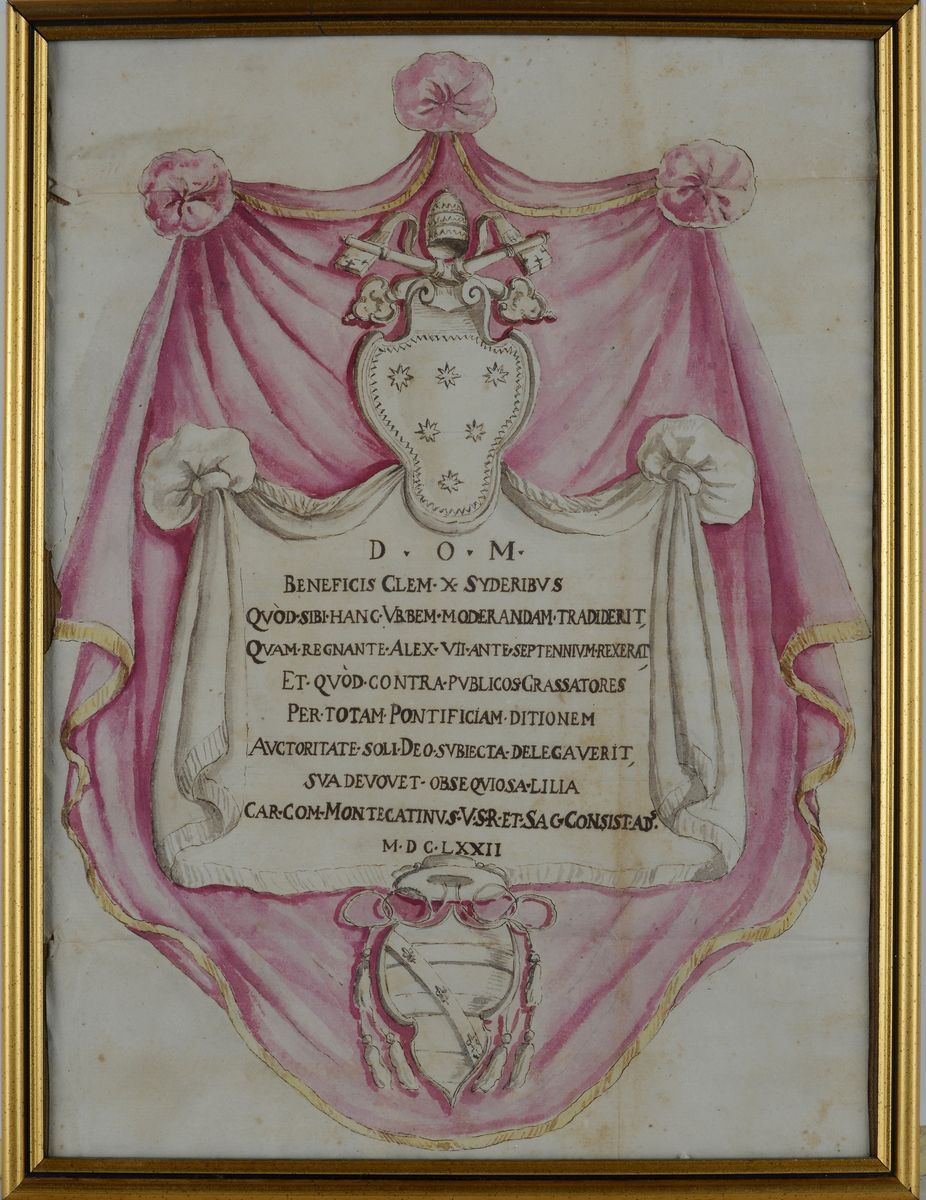 D · O · M ·
BENEFICIS CLEM · X · SYDERIBVS
QVÒD · SIBI · HANC · VRBEM · MODERANDAM · TRADIDERIT,
QVAM · REGNANTE · ALEX · VII · ANTE · SEPTENNIVM · REXERAT,
ET · QVÒD · CONTRA · PVBLICOS · GRASSATORES
PER · TOTAM · PONTIFICIAM · DITIONEM
AVCTORITATE · SOLI · DEO · SVBIECTA · DELEGAVERIT,
SVA DEVOVET · OBSEQVIOSA · LILIA
CAR · COM · MONTECATINVS · V · S · R · ET · SAG CONSIST · AD.
M · D C · LXXII